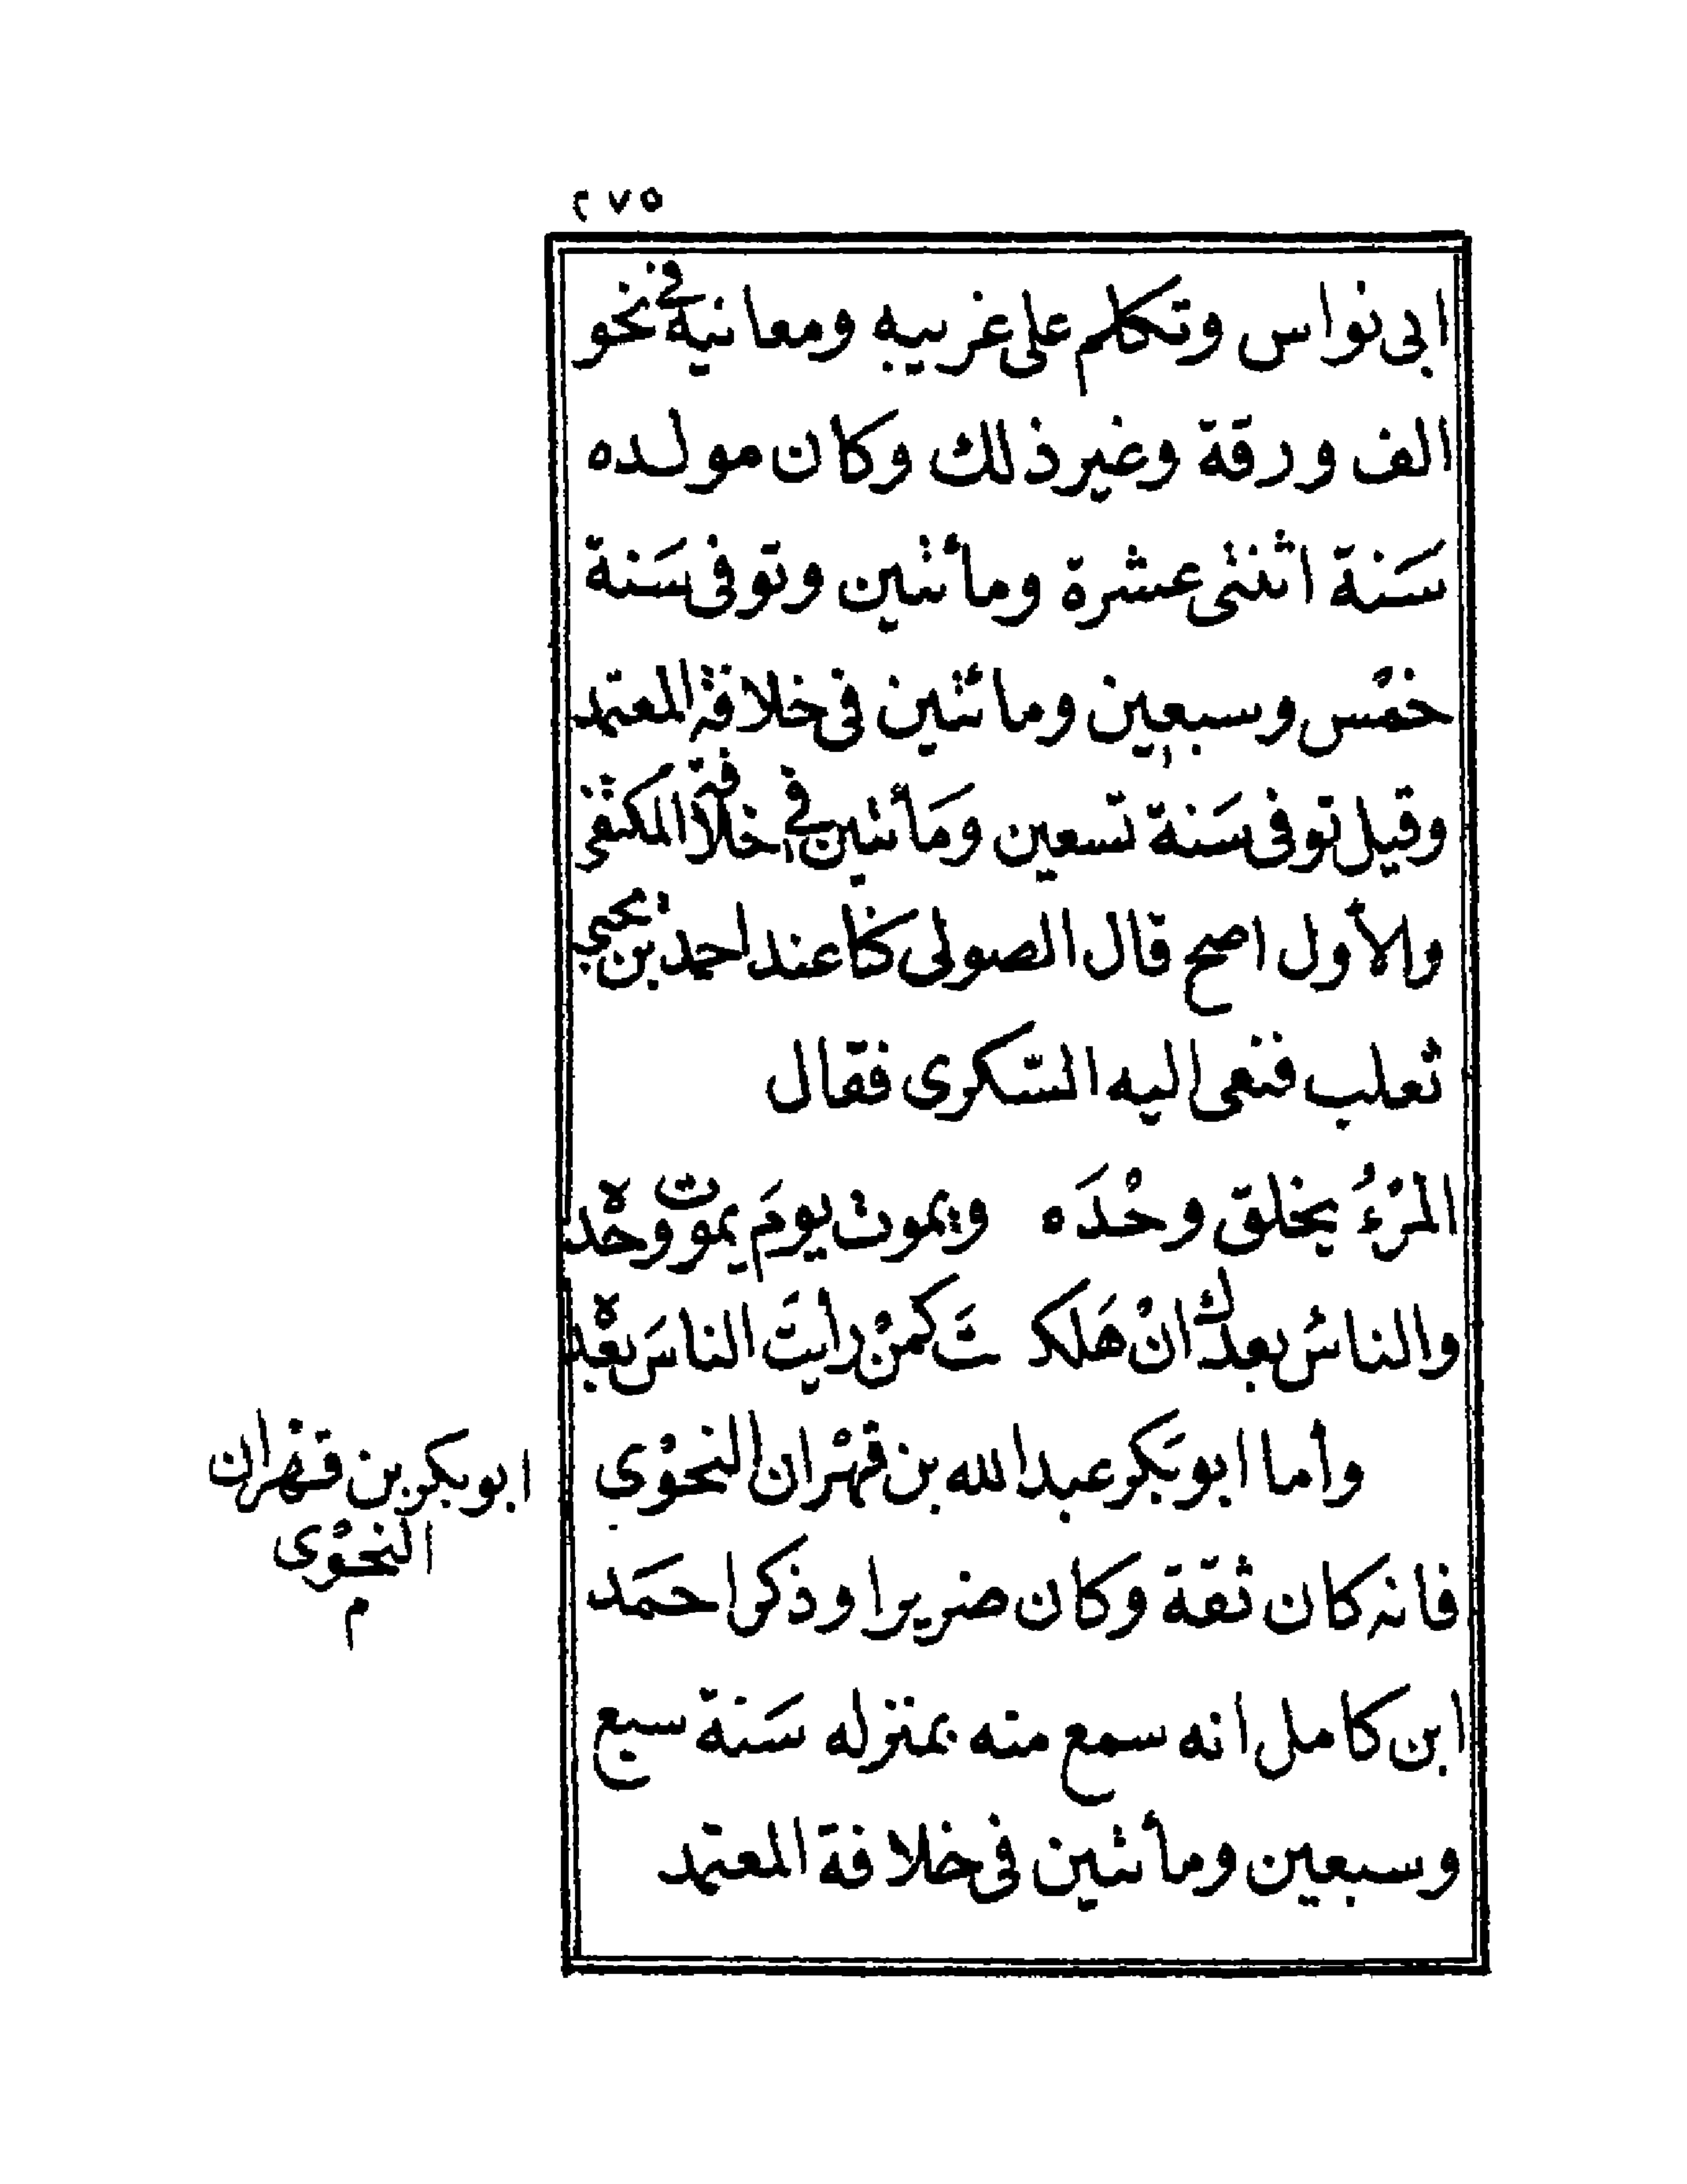 ٢٧٥
ابى نواس وتكلم على غريبه ومعانيه فى نحو
الف ورقة وغير ذلك وكان مولده
سَنة اثنتى عشرة ومأتين وتوفى سَنة
خمْس وسبعين ومائتين فى خلافة المعتمد
وقيل توفى سَنة تسعين ومَأتين فى خلافة المكتفى
والأول اصح قال الصولى كنا عند احمد بن يحيى
ثعلب فنعى اليه السّكرى فقال
المرْءُ يخلق وحْدَه ويموت يومَ يموت وحْده
والناسُ بعدك انْ هَلكـ ـتَ كمنْ رأيتَ الناسَ بعْده
وأما ابو بَكر عبد الله بن قهْران النحوْى
فانه كان ثقة وكان ضريرا وذكر احمَد
ابن كامل انه سمع منه بمنزله سَنة سبع
وسبعين ومأتين فى خلافة المعتمد
ابو بكر بن قهْران
النحوْى
م